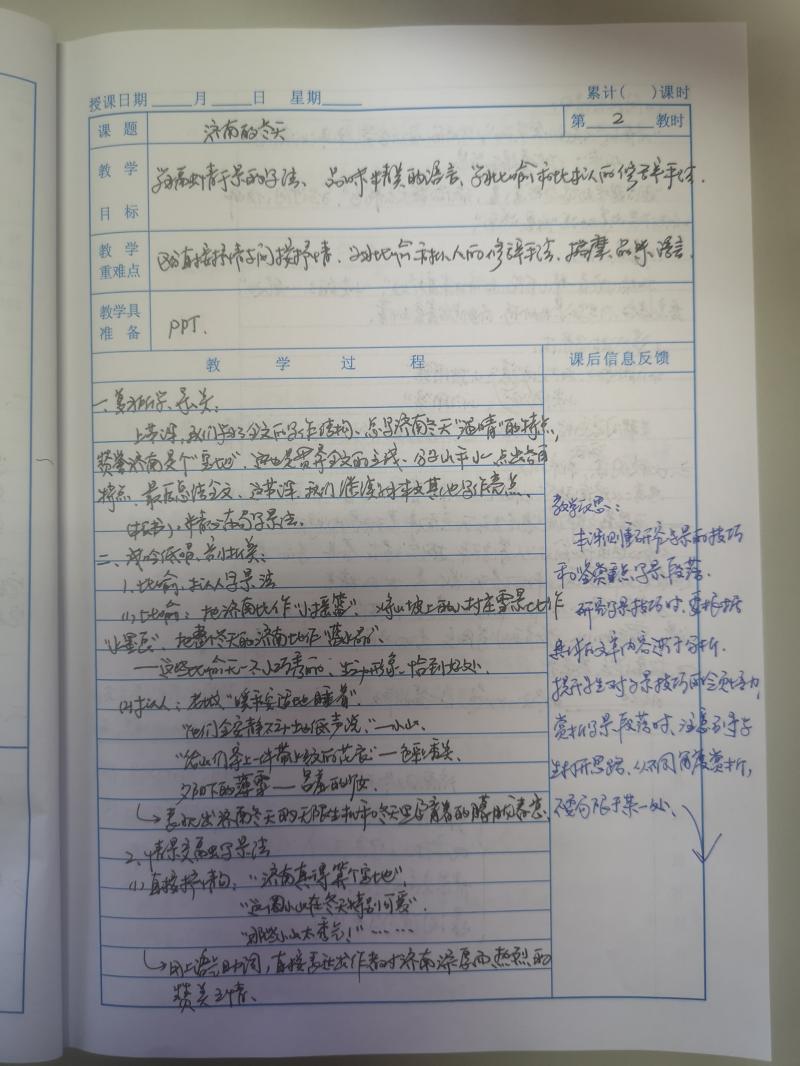 授课日期 月 日 星期 累计( )课时
课题 济南的冬天 第 2 教时
教学目标 学习情于景的写法、品味精美的语言、学习比喻和比拟人的修辞手法.
教学重难点 区分直接抒情与间接抒情、学习比喻和拟人的修辞手法、揣摩、品味语言.
教学具准备 PPT.
教学过程 课后信息反馈
一、复习所学,导入:
上节课,我们学习了全文的写作结构、总写济南冬天“温晴”的特点,
赞誉济南是个“宝地”、这也是贯穿全文的主线、分写山和水、点出各自
特点、最后总结全文、这节课,我们继续学习本文其他写作亮点、
(板书)、精心布局写景法.
二、浅吟低唱、赏析美:
1.比喻、拟人写景法
(1)比喻:把济南比作“小摇篮”、将山坡上的小村庄雪景比作
“小墨画”、把整个冬天的济南比作“蓝水晶”.
——这些比喻无一不小巧秀丽、生动形象、恰到好处.
(2)拟人:老城“暖和安适地睡着”
“他们全安静不动地低声说”——小山.
“给山们穿上一件带水纹的花衣”——色彩秀美.
夕阳下的薄雪——害羞的少女.
↳表现出济南冬天的无限生机和冬天里孕育着的朦胧春意.
2、情景交融写景法
(1)直接抒情句:“济南真得算个宝地”,
“这圈小山在冬天特别可爱”.
“那些小山太秀气!”……
↳用上语气助词,直接表达出作者对济南深厚而热烈的
赞美之情.
教学反思:
本课侧重研究写景的技巧
和鉴赏重点写景段落.
研究写景技巧时,要根据
具体的文章内容进行分析.
提升学生对写景技巧的会员能力,
赏析写景段落时,注意引导学
生打开思路、从不同角度赏析,
不要局限于某一处、